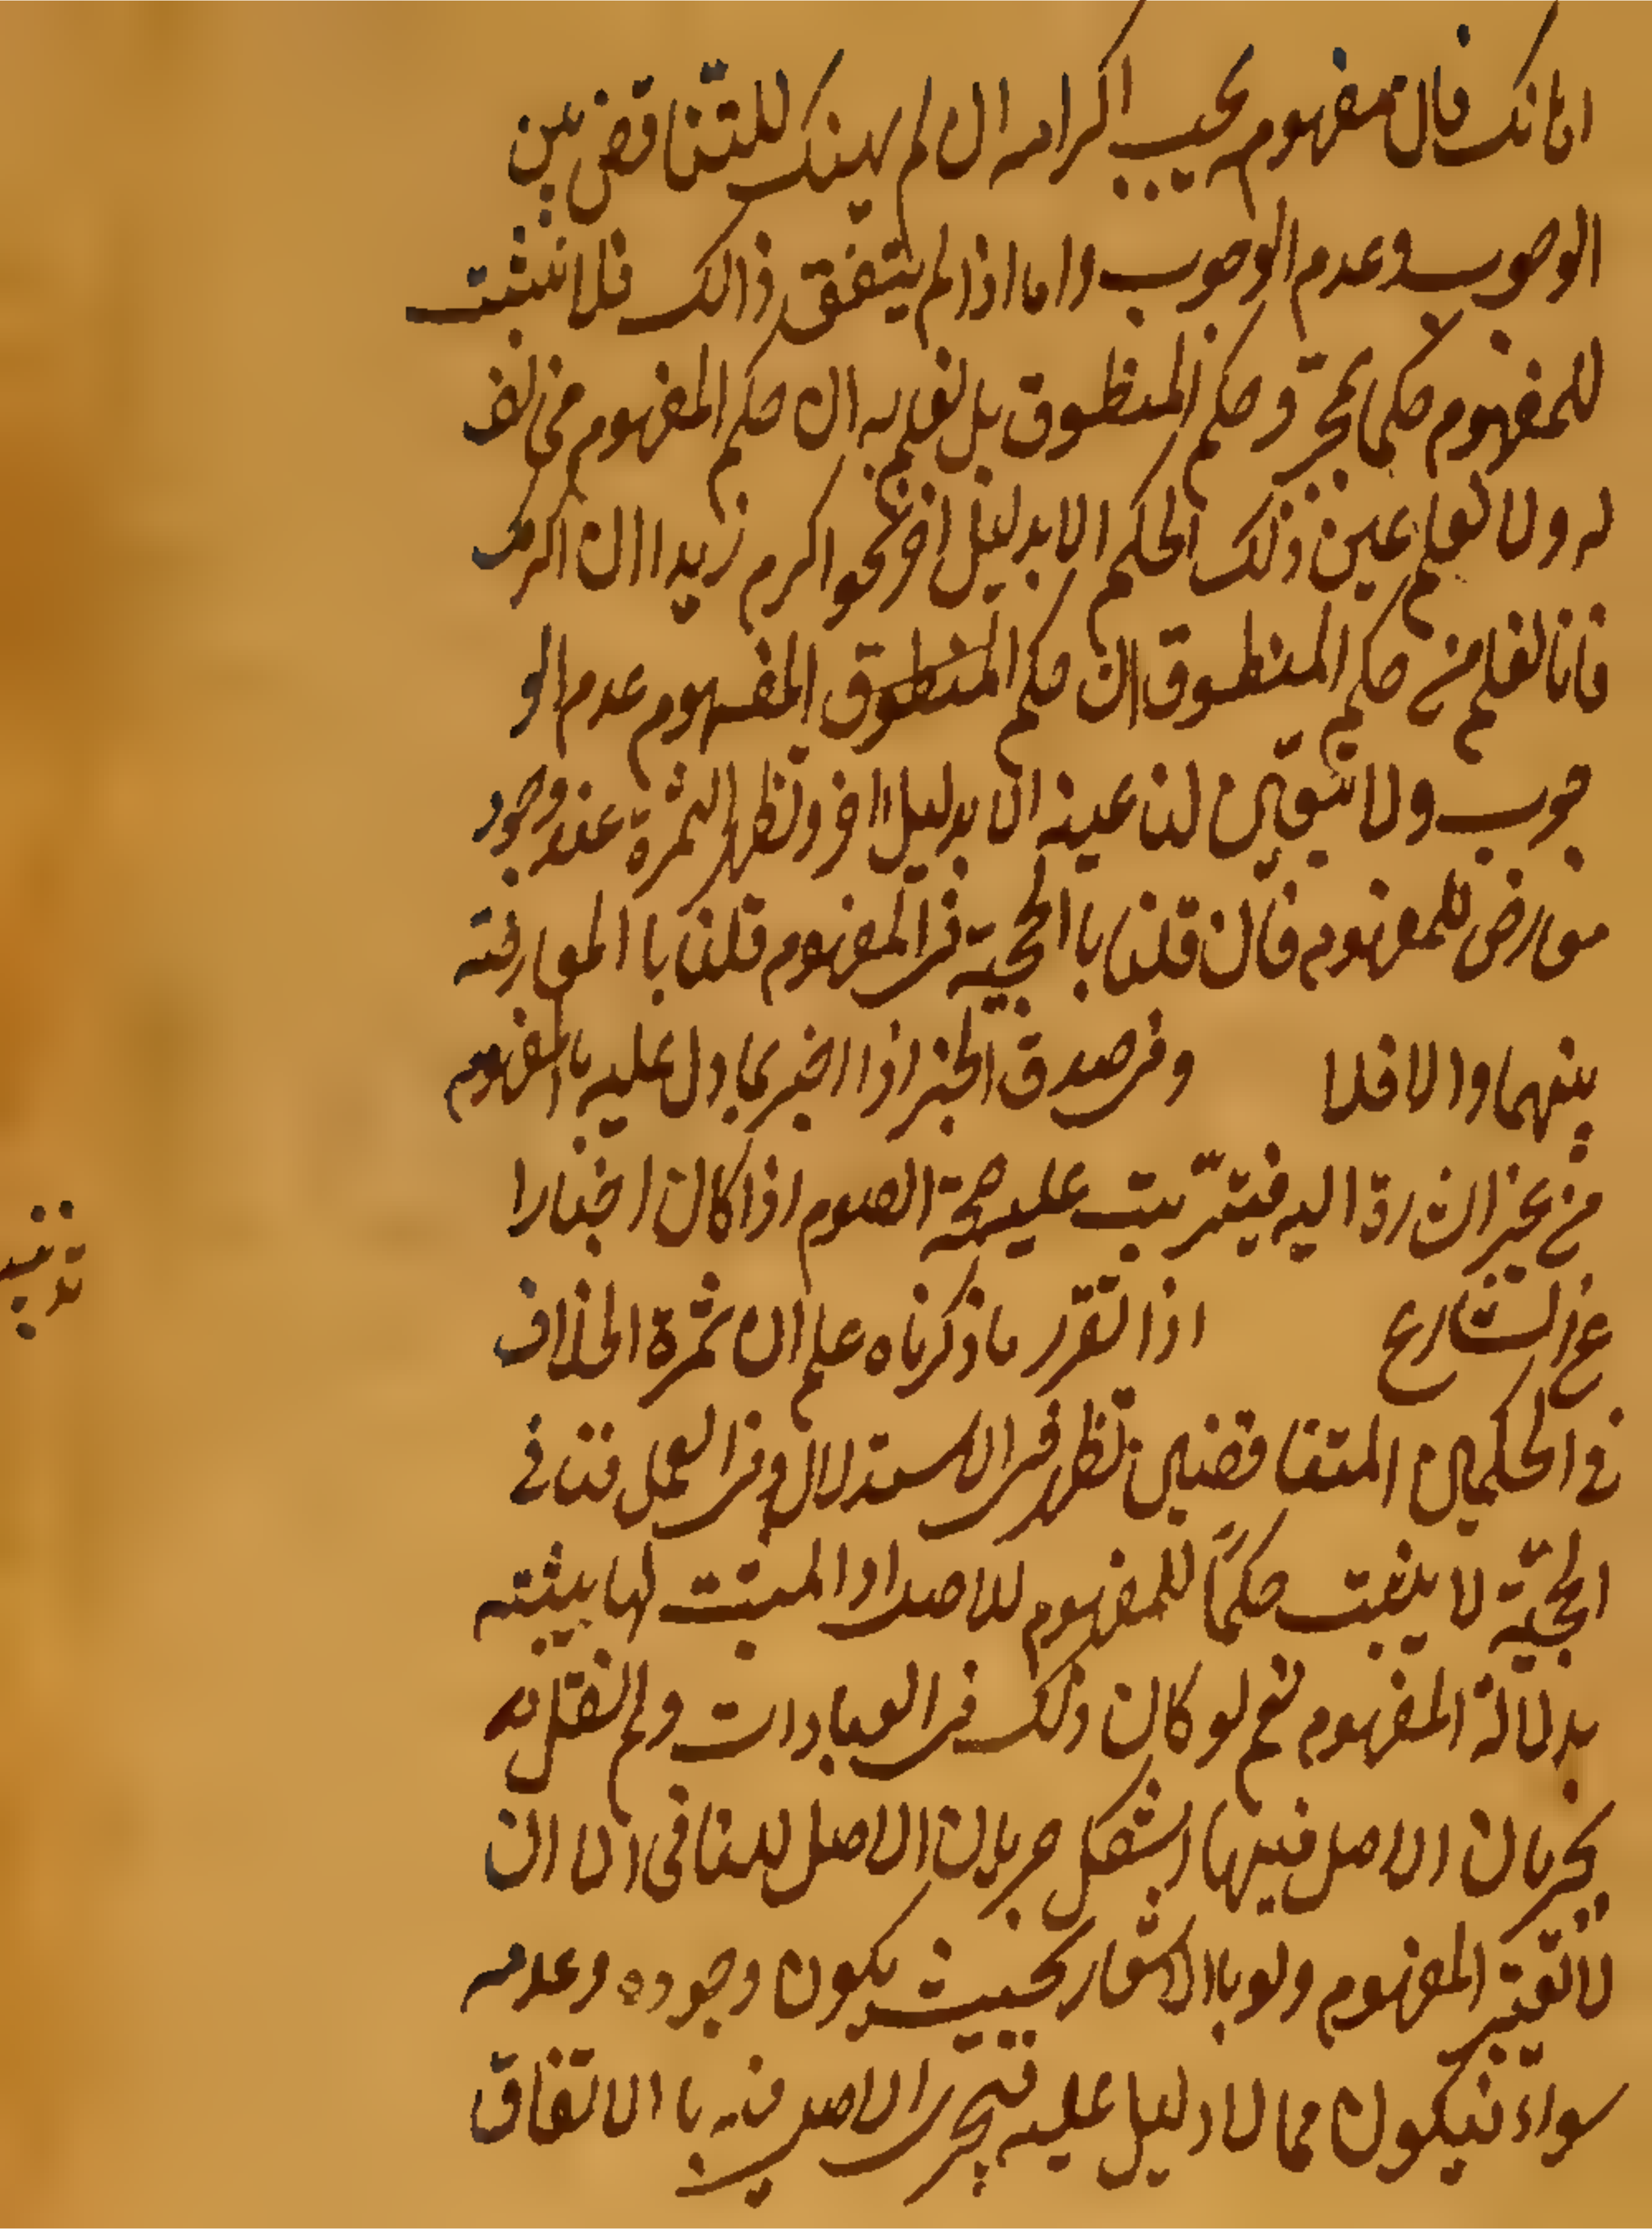 اهانك فان مفهوم يجب اكرامه ان لم يهينك للتناقض بين
الوجوب وعدم الوجوب واما اذا لم يتفق ذالك فلا نثبت
للمفهوم حكما بمجرّد حكم المنطوق بل نعلم به ان حكم المفهوم مخالف
له ولا نعلم عين ذلك الحكم الا بدليل اخر نحو اكرم زيدا ان اكرمك
فانا نعلم من حكم المنطوق ان حكم المنطوق المفهوم عدم الو
جوب ولا يتعين لنا عينه الا بدليل اخر وتظهر الثمرة عند وجود
معارض للمفهوم فان قلنا باالحجية في المفهوم قلنا باالمعارضة
بينهما والا فلا وفي صدق الخبر اذا اخبر بما دل عليه بالمفهوم
من غير اشارة اليه فيترتب عليه صحة الصوم اذا كان اخبارا
عن الشارع اذا تقرر ما ذكرناه علم ان ثمرة الخلاف
في الحكمين المتناقضين تظهر في الاستدلال وفي العمل فنافي
الحجيّة لا يثبت حكماً للمفهوم للاصل والمثبت لها يثبته
بدلالة المفهوم نعم لو كان ذلك في العبادات ولم نقل به
بجريان الاصل فيها اشكل جريان الاصل للنافى الا ان
لا نعتبر المفهوم ولو باالاشعار بحيث يكون وجوده وعدمه
سواء فيكون مما لا دليل عليه فيجرى الاصل فيه باالاتفاق
تذنيب